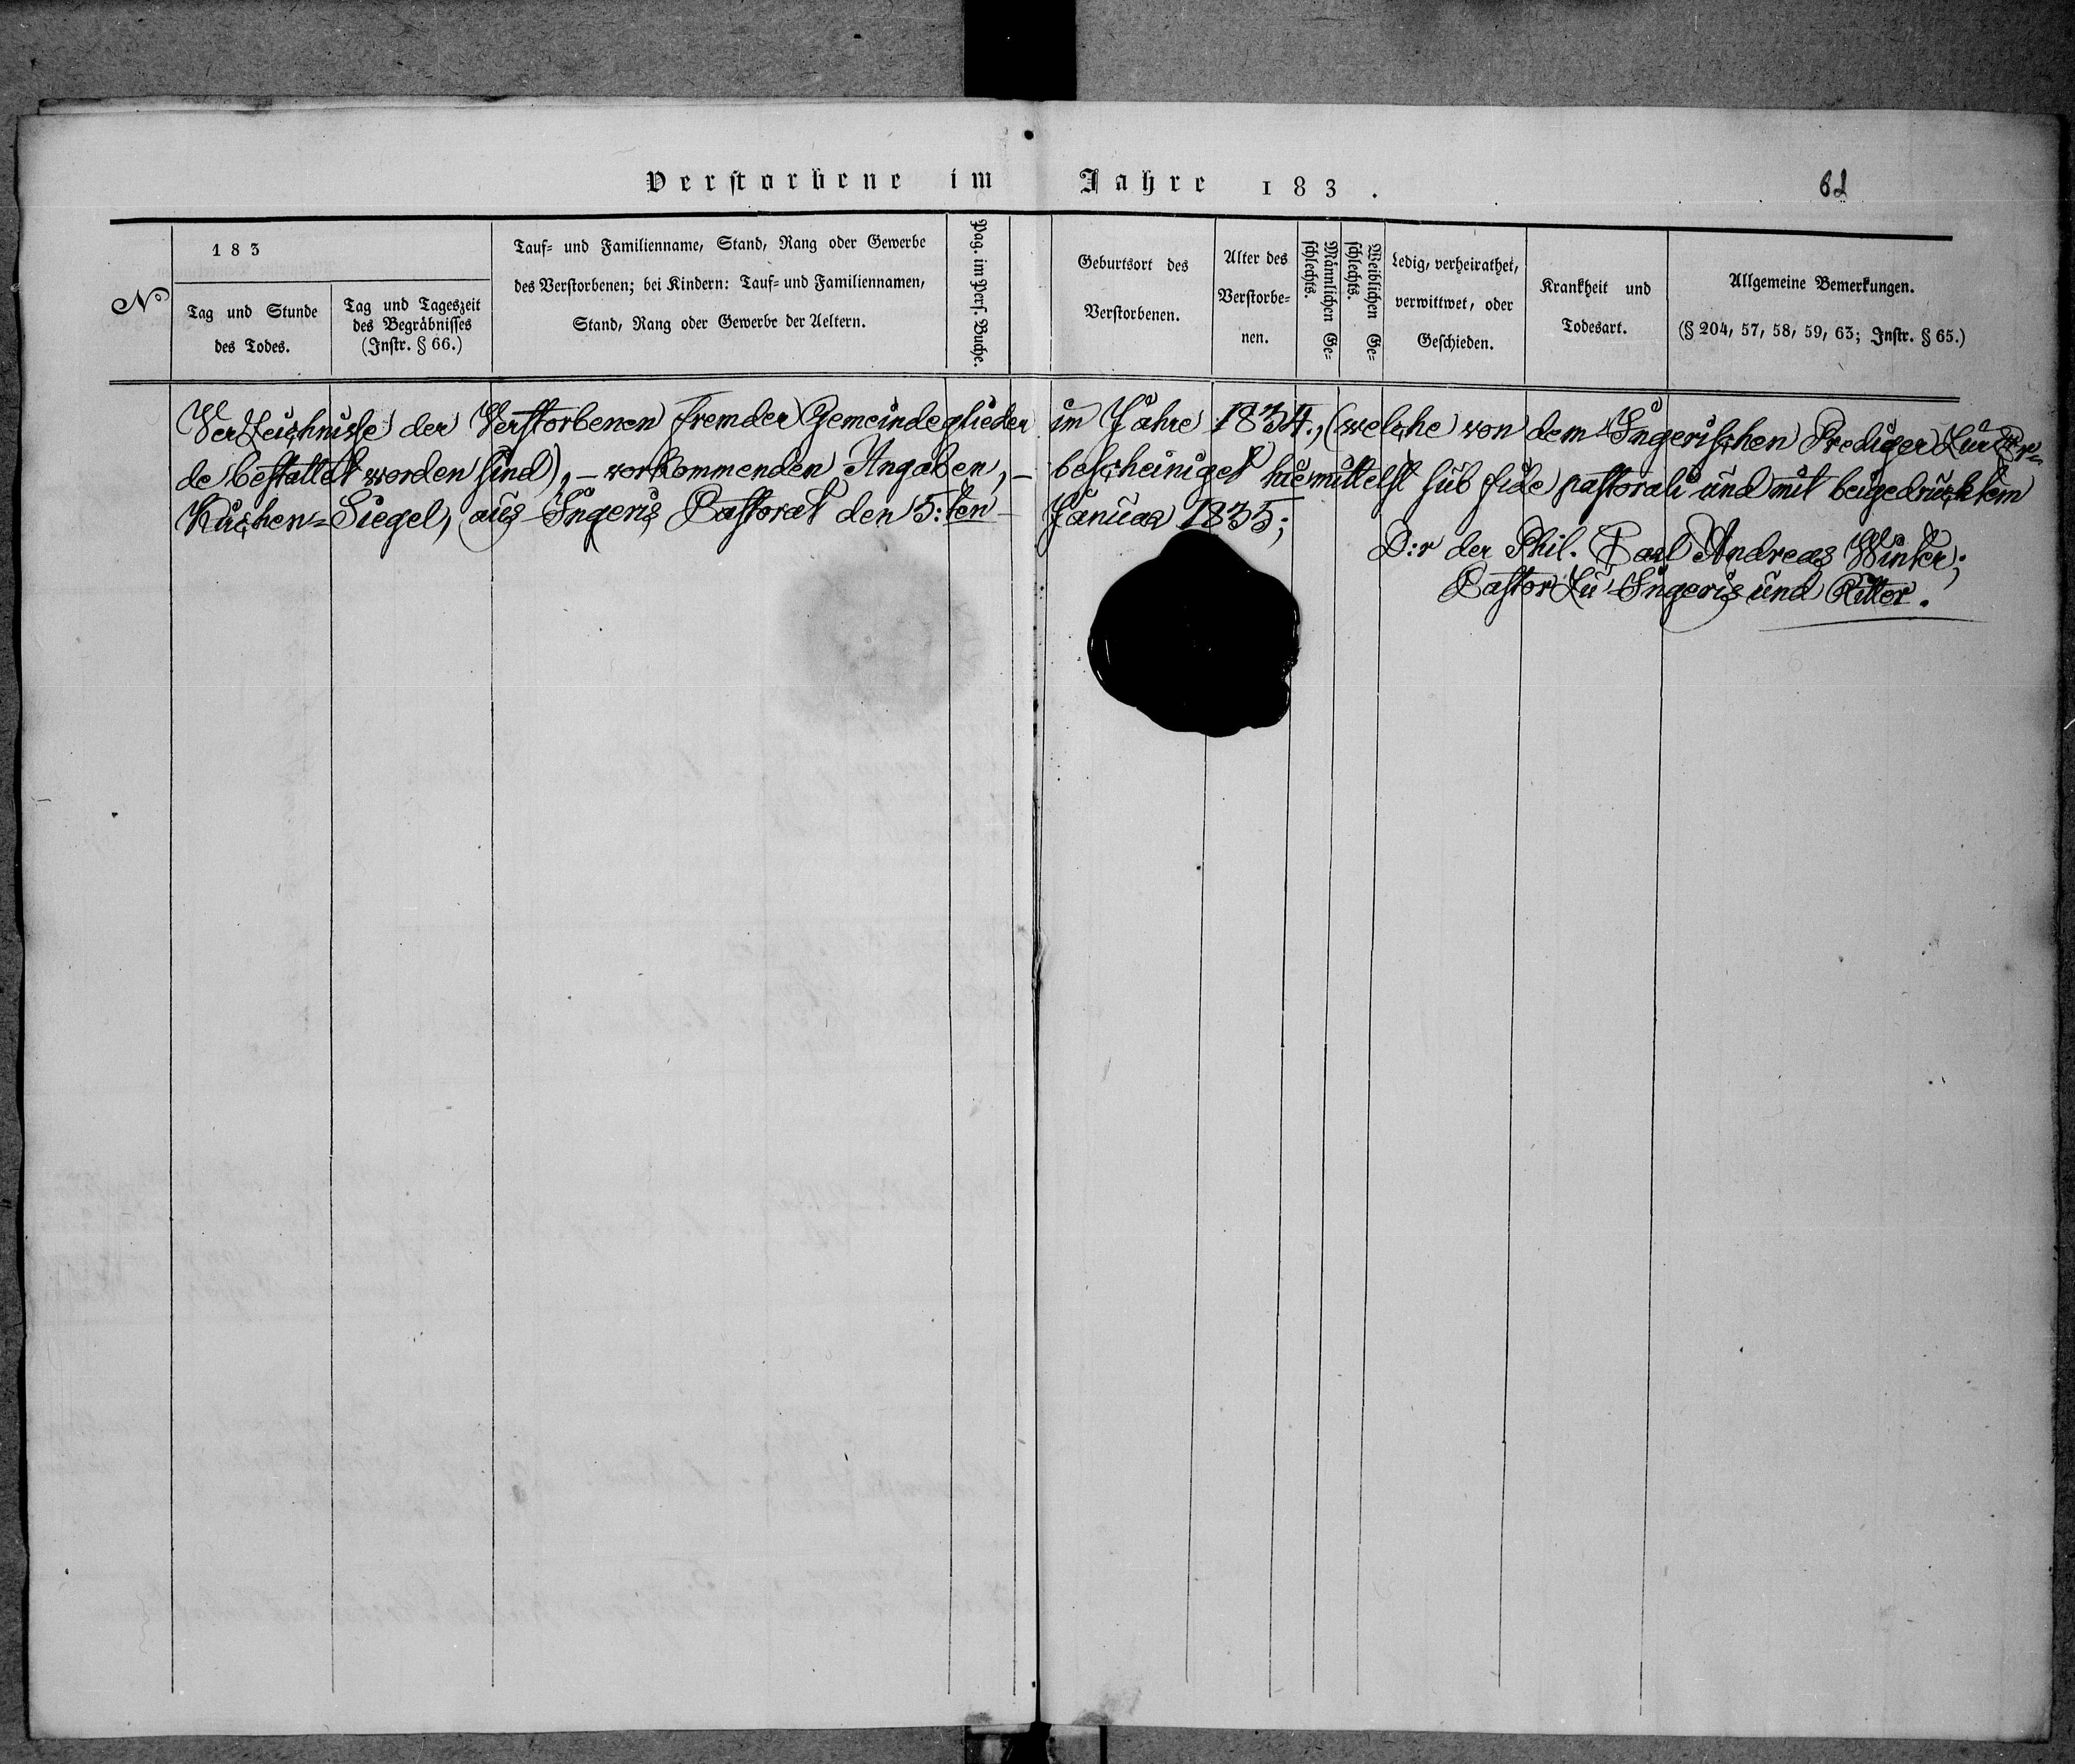 Verstorbene im Jahre 183 .
61
No
183
Tag und Stunde
des Todes.
Tag und Tageszeit
des Begräbnisses
(Instr. § 66.)
Tauf= und Familienname, Stand, Rang oder Gewerbe
des Verstorbenen; bei Kindern: Tauf= und Familiennamen,
Stand, Rang oder Gewerbe der Aeltern.
Pag. im Pers. Buche.
Geburtsort des
Verstorbenen.
Alter des
Verstorbe=
nen.
Männlichen Ge=
schlechts.
Weiblichen Ge=
schlechts.
Ledig, verheirathet,
verwittwet, oder
Geschieden.
Krankheit und
Todesart.
Allgemeine Bemerkungen.
(§ 204, 57, 58, 59, 63; Instr. § 65.)
Verzeichnisse der Verstorbenen fremder Gemeindeglieder im Jahre 1834., (welche von dem Ingerischen Prediger zur Er=
de bestattet worden sind), – vorkommenden Angaben, – bescheiniget hiemittelst sub fide pastorali und mit beigedrücktem
Kirchen=Siegel, aus Ingeris Pastorat den 5:ten Januar 1835;
D:r der Phil. Carl Andreas Winter;
Pastor zu Ingeris und Ritter.